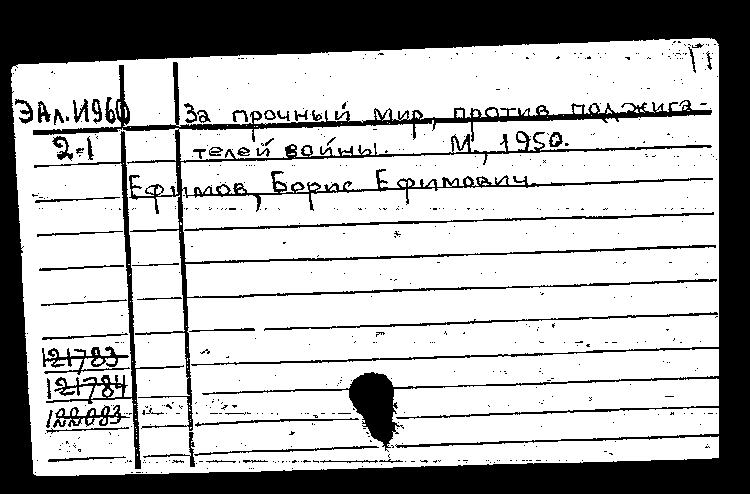 ЭАл.И960 За прочный мир, против поджига-
2-1 телей войны. М., 1950.
Ефимов, Борис Ефимович.
121783
121784
122083